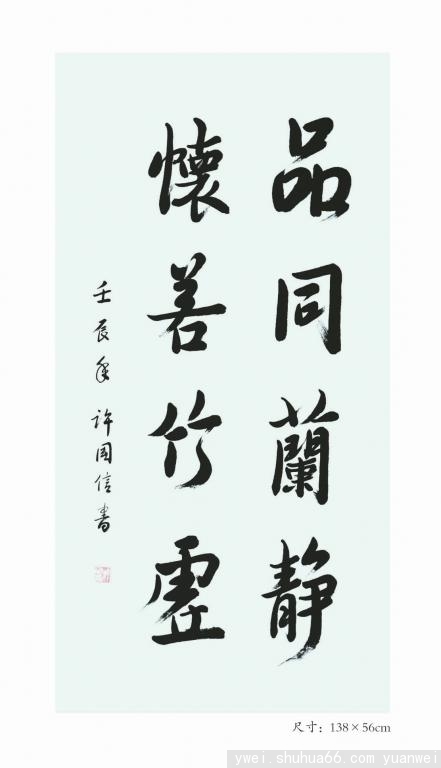 品同蘭静
懷若竹虚
壬辰年 许国信書
尺寸：138×56cm
ywei.shuhua66.com yuanwei